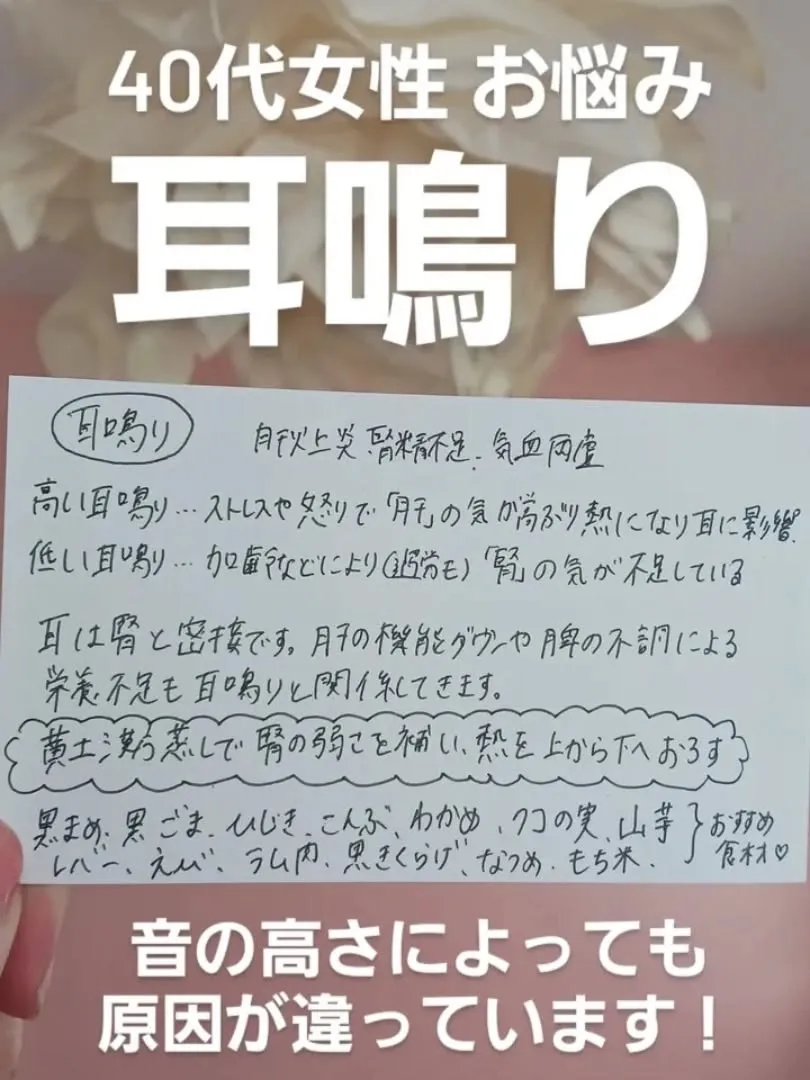 40代女性 お悩み
耳鳴り
耳鳴り
肝火上炎.腎精不足.気血両虚
高い耳鳴り…ストレスや怒りで「肝」の気が高ぶり熱になり耳に影響.
低い耳鳴り…加齢などにより(過労も)「腎」の気が不足している
耳は腎と密接です。肝の機能ダウンや脾の不調による
栄養不足も耳鳴りと関係してきます。
黄土漢方蒸しで腎の弱さを補い、熱を上から下へおろす
黒まめ、黒ごま、ひじき、こんぶ、わかめ、クコの実、山芋
レバー、えび、ラム肉、黒きくらげ、なつめ、もち米.
おすすめ
食材♡
音の高さによっても
原因が違っています!